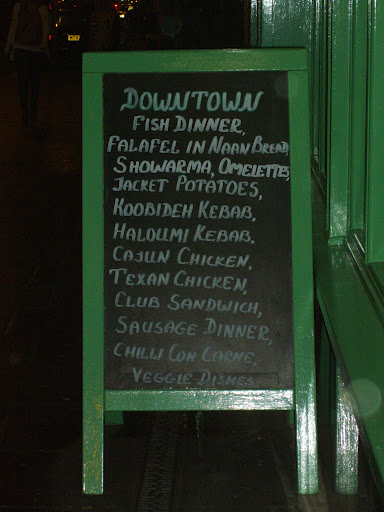 DOWNTOWN
FISH DINNER,
FALAFEL IN NAAN BREAD,
SHOWARMA, OMELETTES,
JACKET POTATOES,
KOOBIDEH KEBAB,
HALOUMI KEBAB,
CAJUN CHICKEN,
TEXAN CHICKEN,
CLUB SANDWICH,
SAUSAGE DINNER,
CHILLI CON CARNE.
VEGGIE DISHES